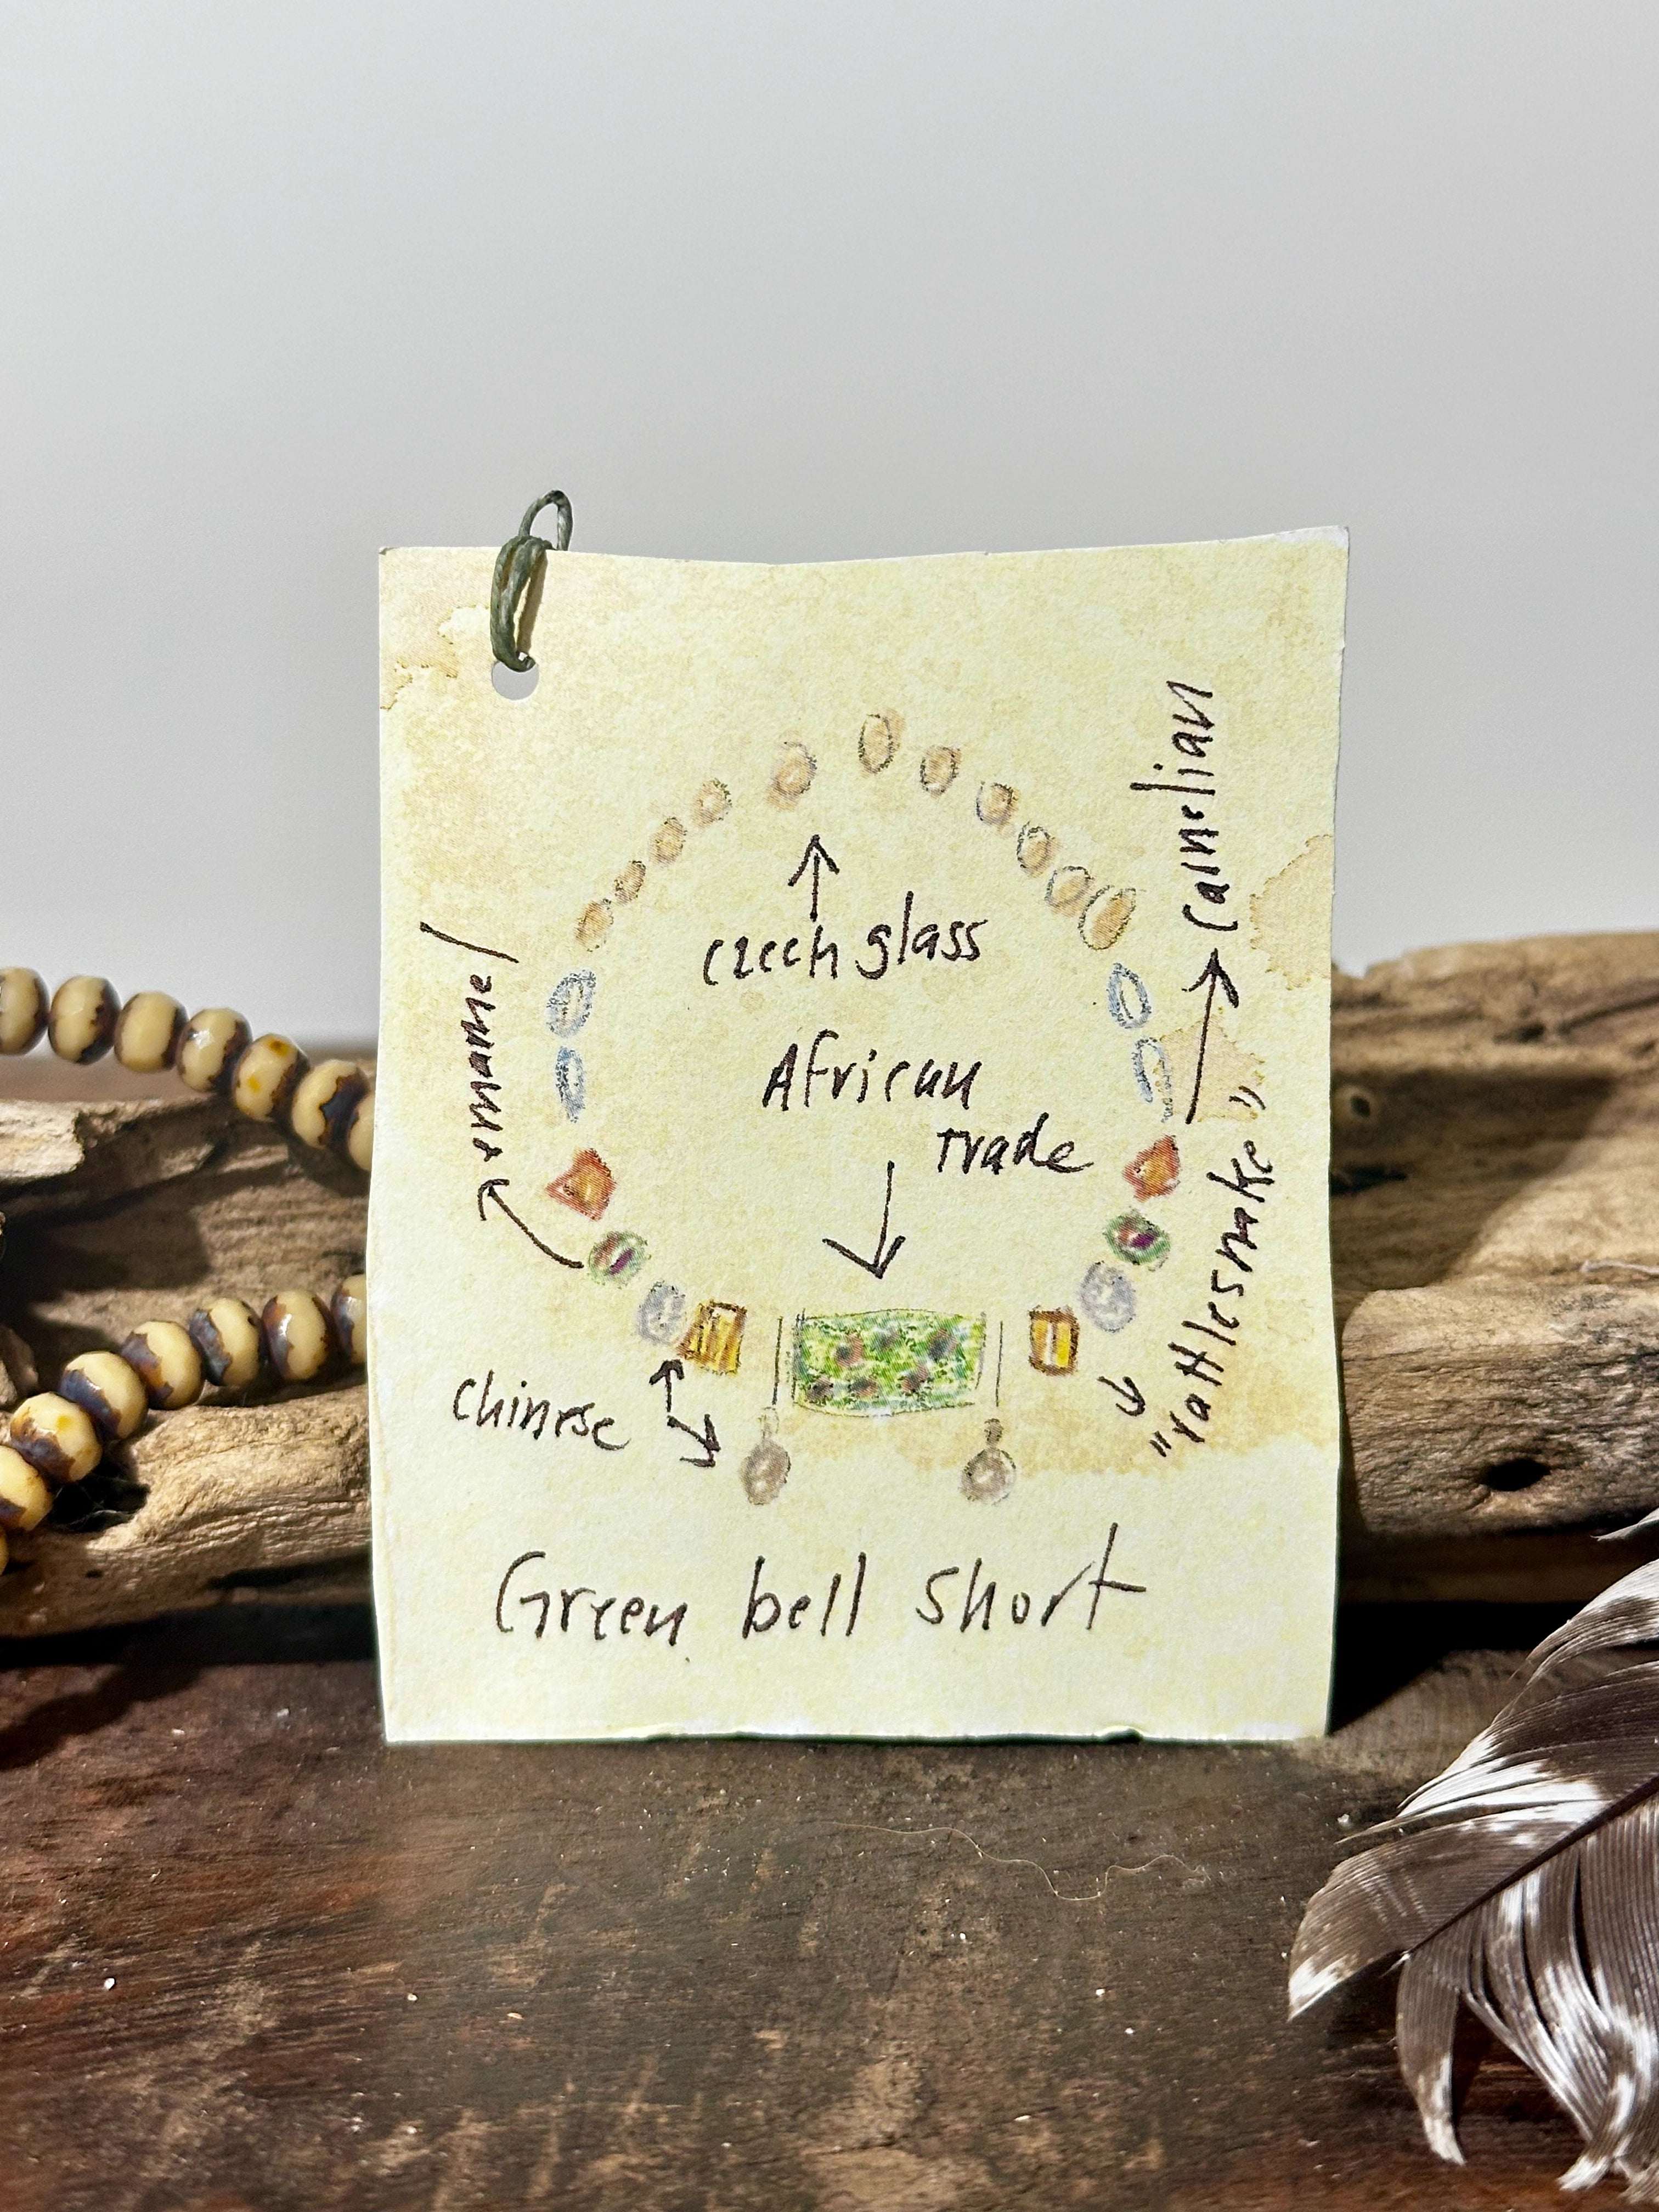 Czech glass
African
trade
Carnelian
"rattlesnake"
Chinese
Green bell short